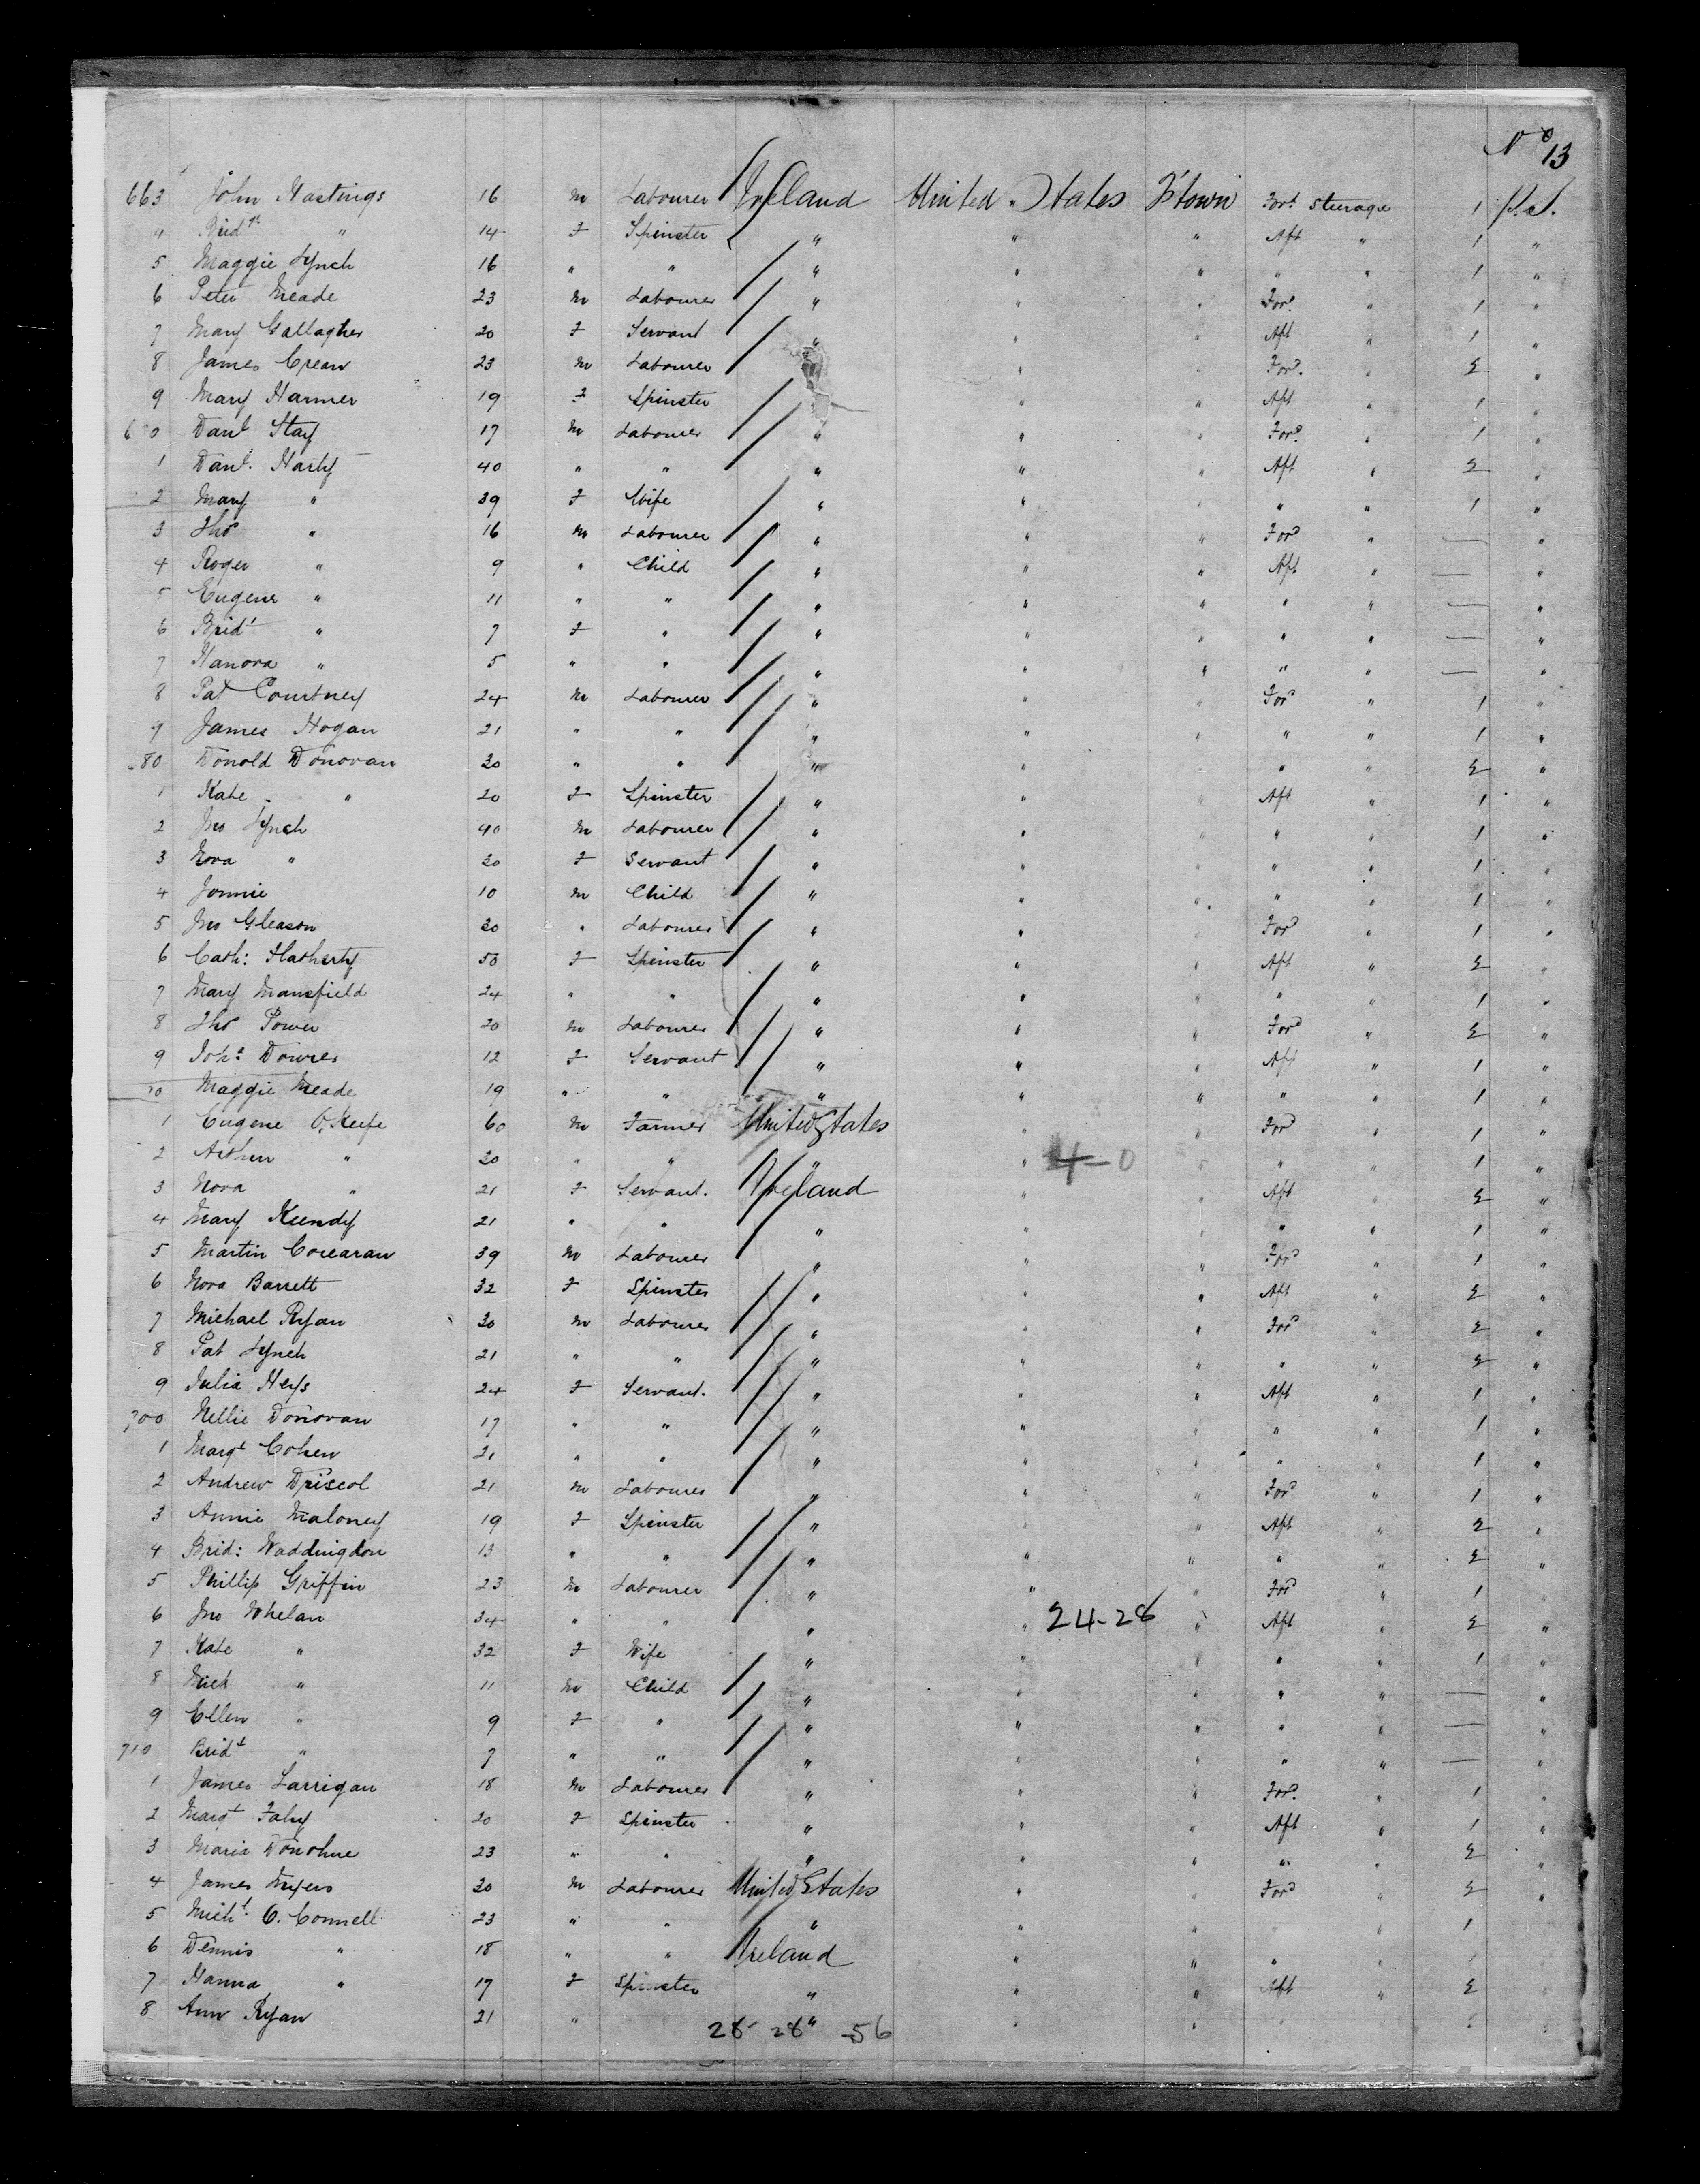 No 13
663 John Hastings 16 m Labourer Ireland United States Q'town Ford Steerage 1 P.S.
" Bridt " 14 F Spinster " " " Aft " 1 "
5 Maggie Lynch 16 " " " " " " " 1 "
6 Peter Meade 23 m Labourer " " " Ford " 1 "
7 Mary Gallagher 20 F Servant " " " Aft " 1 "
8 James Crean 23 m Labourer " " Ford " 2 "
9 Mary Harmer 19 F Spinster " " Aft " 1 "
670 Danl Stay 17 m Labourer " " " Ford " 1 "
1 Danl. Harty 40 " " " " " Aft " 2 "
2 Mary " 39 F Wife " " " " " 1 "
3 Thos " 16 m Labourer " " " Ford " — "
4 Roger " 9 " Child " " " Aft " — "
5 Eugene " 11 " " " " " " " — "
6 Bridt " 7 F " " " " " " — "
7 Hanora " 5 " " " " " " " — "
8 Pat Courtney 24 m Labourer " " " Ford " 1 "
9 James Hogan 21 " " " " " " " 1 "
80 Donold Donovan 30 " " " " " " 2 "
1 Kate " 20 F Spinster " " Aft " 1 "
2 Jno Lynch 40 m Labourer " " " " " 1 "
3 Nora " 20 F Servant " " " " " 1 "
4 Jonnie 10 m Child " " " " " 1 "
5 Jno Gleason 20 " Labourer " " " Ford " 1 "
6 Cath: Flatherty 50 F Spinster " " " Aft " 2 "
7 Mary Mansfield 24 " " " " " " " 1 "
8 Thos Power 20 m Labourer " " " Ford " 2 "
9 Joha Downes 12 F Servant " " " Aft " 1 "
90 Maggie Meade 19 " " " " " " " 1 "
1 Eugene O'Keefe 60 m Farmer United States " " Ford " 1 "
2 Arthur " 20 " " " " 4-0 " " " 1 "
3 Nora " 21 F Servant. Ireland " " Aft " 2 "
4 Mary Keendy 21 " " " " " " " 1 "
5 Martin Corcaran 39 m Labourer " " " Ford " 1 "
6 Nora Barrett 32 F Spinster " " " Aft " 2 "
7 Michael Ryan 30 m Labourer " " " Ford " 2 "
8 Pat Lynch 21 " " " " " " " 2 "
9 Julia Heys 24 F Servant. " " " Aft " 1 "
700 Nellie Donovan 17 " " " " " " " 1 "
1 Margt Cohen 21 " " " " " " " 1 "
2 Andrew Driscol 21 m Labourer " " " Ford " 1 "
3 Annie Maloney 19 F Spinster " " " Aft " 2 "
4 Brid: Waddingdon 13 " " " " " " " 2 "
5 Phillip Griffin 23 m Labourer " " " Ford " 1 "
6 Jno Whelan 34 " " " " 24-28 " Aft " 2 "
7 Kate " 32 F Wife " " " " " 1 "
8 Mick " 11 m Child " " " " " — "
9 Ellen " 9 F " " " " " " — "
710 Bridt " 7 " " " " " " " — "
1 James Larrigan 18 m Labourer " " " Ford " 1 "
2 Margt Fahy 20 F Spinster " " " Aft " 1 "
3 Maria Donohue 23 " " " " " " " 2 "
4 James Myers 30 m Labourer United States " " Ford " 2 "
5 Michl. O. Connell 23 " " " " " 1 "
6 Dennis " 18 " " Ireland " " " "
7 Hanna " 17 F Spinster " " " Aft " 2 "
8 Ann Ryan 21 " " " "
28 28 56